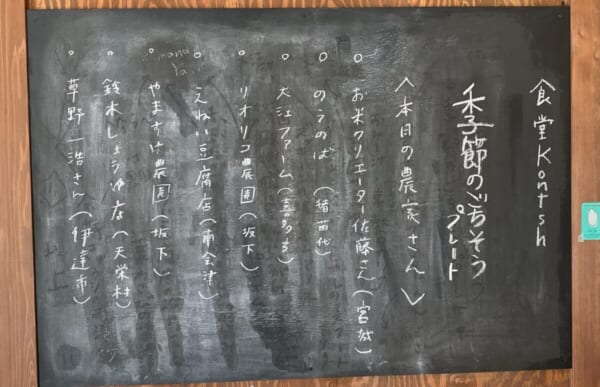 食堂Kontsh
季節のごちそう
プレート
〈本日の農家さん〉
○お米クリエーター佐藤さん(宮城)
○のうのば(猪苗代)
○大江ファーム(喜多方)
○リオリコ農園(坂下)
○えねい豆腐店(南会津)
○やますけ農園(坂下)
○鈴木しょうゆ店(天栄村)
○草野一浩さん(伊達市)
mano